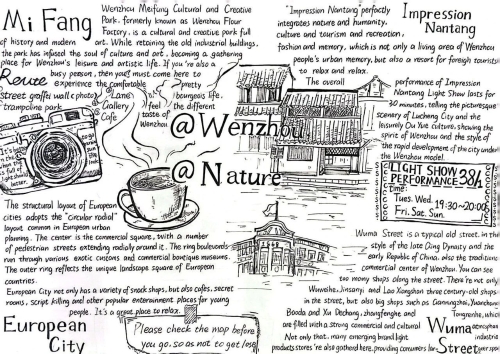 Mi Fang
Wenzhou Meifang Cultural and Creative
Park, formerly known as Wenzhou Flour
Factory, is a cultural and creative park full
of history and modern art. While retaining the old industrial buildings,
the park has infused the soul of culture and art, becoming a gathering
place for Wenzhou's leisure and artistic life. If you're also a
busy person, then you must come here to
experience the comfortable
pretty
bourgeois life.
Route
street graffiti wall (photo)
trampoline park
Lane
Gallery
Cafe
feel the different
taste of
Wenzhou
@Wenzhou
@Nature
"Impression Nantang perfectly
integrates nature and humanity,
culture and tourism and recreation,
fashion and memory, which is not only a living area of Wenzhou
people's urban memory, but also a resort for foreign tourists
to relax and relax.
Impression
Nantang
The overall performance of Impression
Nantang Light Show lasts for
30 minutes, telling the picturesque
scenery of Lucheng City and the
leisurely Ou Yue culture, showing the
spirit of Wenzhou and the style of
the rapid development of the city under
the Wenzhou model.
LIGHT SHOW
PERFORMANCE
Time:
Tues. Wed. 19:30~20:00
Fri. Sat. Sun.
The structural layout of European
cities adopts the "circular radial"
layout common in European urban
planning. The center is the commercial square, with a number
of pedestrian streets extending radially around it. The ring boulevards
run through various exotic customs and commercial boutique museums.
The outer ring reflects the unique landscape square of European
countries.
European City not only has a variety of snack shops, but also cafes, secret
rooms, Script killing and other popular entertainment places for young
people. It's a great place to relax.
European
City
Please check the map before
you go, so as not to get lose
Wuma Street is a typical old street, in the
style of the late Qing Dynasty and the
early Republic of China, also the traditional
commercial center of Wenzhou. You can see
too many shops along the street. There're not only
Wuweihe, Jinsanyi and Lao Xiangshan three century-old shops
in the street, but also big shops such as Guanmingzha, Yuanchang
Booda and Xu Dechang, zhangfenghe and Tongrenhe, which
are filled with a strong commercial and cultural atmosphere.
Not only that, many emerging brand light industrial
products stores're also gathered here, providing consumers
Wuma
Street